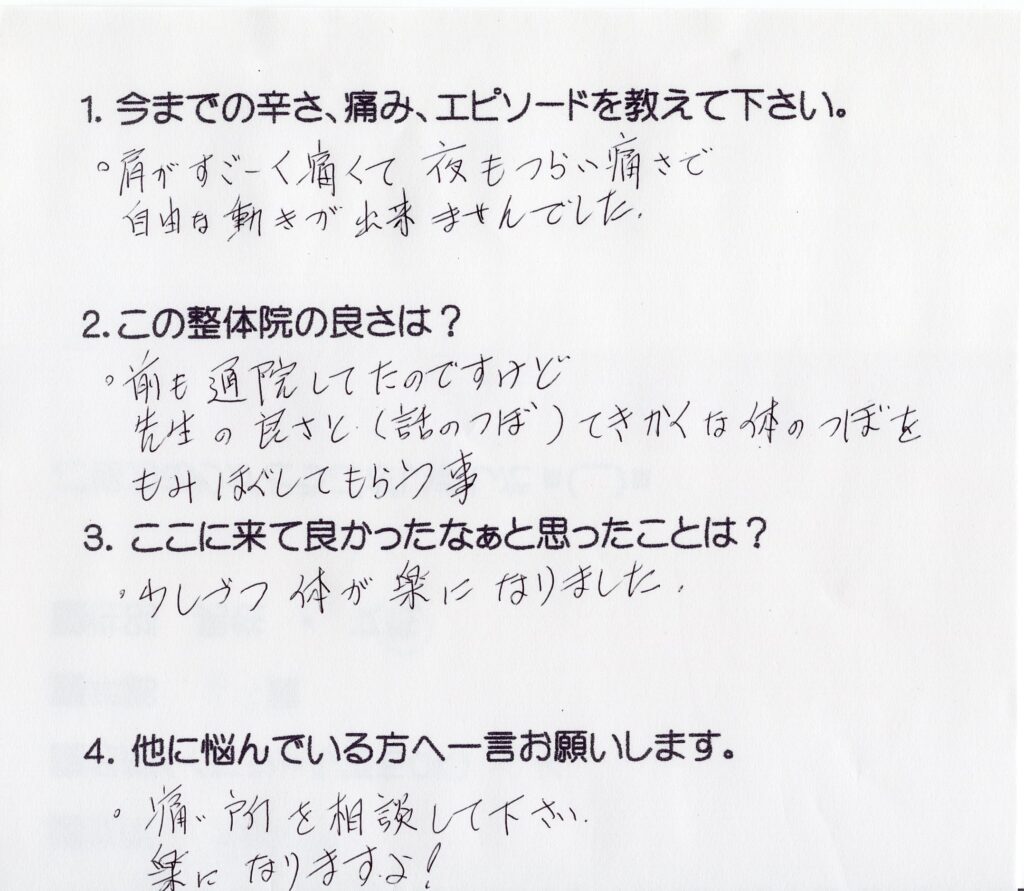 1. 今までの辛さ、痛み、エピソードを教えて下さい。
。肩がすごーく痛くて 夜もつらい痛さで
自由な動きが出来ませんでした.
2. この整体院の良さは？
。前も通院してたのですけど
先生の良さと.(話のつぼ)てきかくな体のつぼを
もみほぐしてもらう事
3. ここに来て良かったなぁと思ったことは？
。少しづつ 体が楽に なりました.
4. 他に悩んでいる方へ一言お願いします。
。痛い所を相談して下さい.
楽に なりますよ!